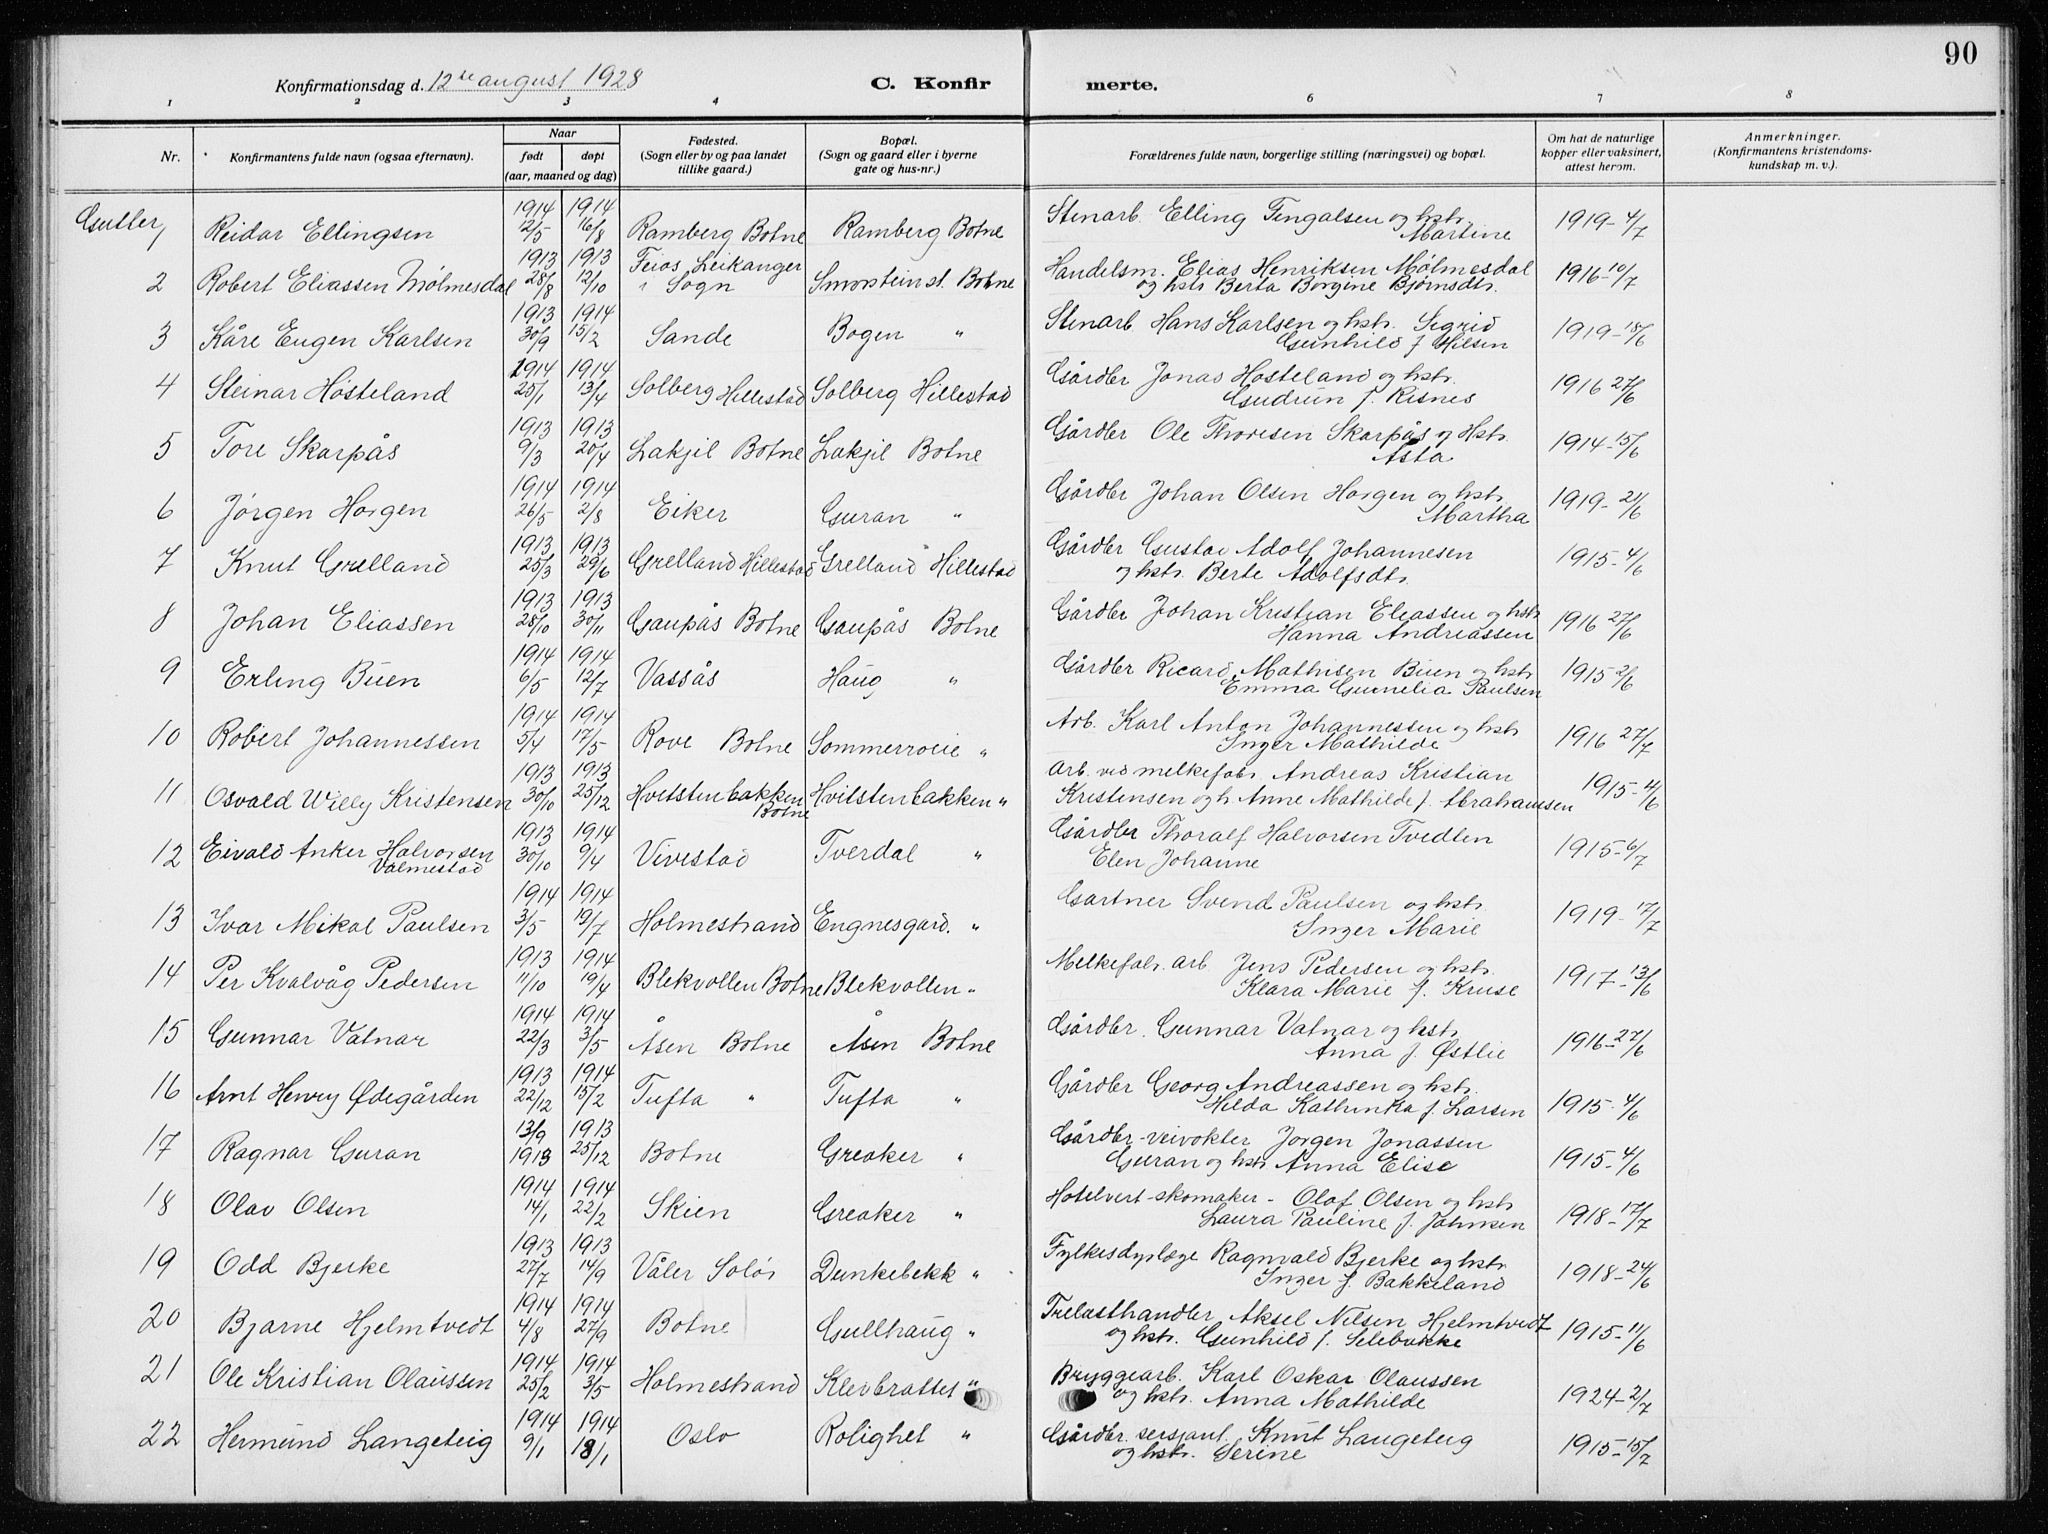 90
Konfirmationsdag d. 12te august 1928 C. Konfir merte.
1 2 3 4 5 6 7 8
Nr. Konfirmantens fulde navn (ogsaa efternavn). Naar født døpt (aar, maaned og dag) Fødested. (Sogn eller by og paa landet tillike gaard.) Bopæl. (Sogn og gaard eller i byerne gate og hus-nr.) Forældrenes fulde navn, borgerlige stilling (næringsvei) og bopæl. Om hat de naturlige kopper eller vaksinert, attest herom. Anmerkninger. (Konfirmantens kristendoms-kundskap m. v.).
Gutter
1 Reidar Ellingsen 1914 12/5 1914 16/8 Ramberg Botne Ramberg Botne Stenarb. Elling Fingalsen og hstr. Martine 1919-4/7
2 Robert Eliassen Mølmesdal 1913 28/8 1913 12/10 Feios Leikanger i Sogn Smorstein st. Botne Handelsm. Elias Henriksen Mølmesdal og hstr Berta Borgine Bjørnsdtr. 1916-10/7
3 Kåre Eugen Karlsen 1913 30/9 1914 15/2 Sande Bogen " Stenarb. Hans Karlsen og hstr. Sigrid Gunhild f Hilsen 1919-18/6
4 Steinar Høsteland 1914 25/1 1914 13/4 Solberg Hillestad Solberg Hillestad Gårdbr Jonas Høsteland og hstr. Gudrun f. Risnes 1916 27/6
5 Tore Skarpås 1913 9/3 1913 20/4 Lakjil Botne Lakjil Botne Gårdbr Ole Thoresen Skarpås og Hstr. Asta 1914-15/6
6 Jørgen Horgen 1914 26/5 1914 2/8 Eiker Guran " Gårdbr Johan Olsen Horgen og hstr. Martha 1919-21/6
7 Knut Grelland 1913 25/3 1913 29/6 Grelland Hillestad Grelland Hillestad Gårdbr Gustav Adolf Johannesen og hstr. Berte Adolfsdtr. 1915-4/6
8 Johan Eliassen 1913 28/10 1913 30/11 Gaupås Botne Gaupås Botne Gårdbr Johan Kristian Eliassen og hstr Hanna Andreassen 1916 27/6
9 Erling Buen 1914 6/5 1914 12/7 Vassås Haug " Gårdbr Ricard Mathisen Buen og hstr. Emma Gunnelia Paulsen 1915 2/6
10 Robert Johannessen 1914 5/4 1914 17/5 Rove Botne Sommerroeie " Arb. Karl Anton Johannessen og hstr Inger Mathilde 1916 27/7
11 Osvald Willy Kristensen 1913 30/10 1913 25/12 Hvitstenbakken Botne Hvitstenbakken " Arb. ved melkefabr. Andreas Kristian Kristensen og h. Anne Mathilde f. Abrahamssen 1915-11/6
12 Eivald Anker Halvorsen Valmestad 1913 30/10 1914 9/4 Vivestad Tverdal " Gårdbr Thoralf Halvorsen Tvedten Elen Johanne 1915-6/7
13 Ivar Mikal Paulsen 1914 3/5 1914 19/7 Holmestrand Engnesgard. " Gartner Svend Paulsen og hstr. Inger Marie 1919-17/7
14 Per Kvalvåg Pedersen 1913 11/10 1914 19/4 Blekvollen Botne Blekvollen " Melkefabr. arb Jens Pedersen og hstr. Klara Marie f. Kruse 1917-13/6
15 Gunnar Vatnar 1914 22/3 1914 3/5 Åsen Botne Åsen Botne Gårdbr. Gunnar Vatnar og hstr. Anna f. Østlie 1916-27/6
16 Arnt Henry Ødegården 1913 22/12 1914 15/2 Tufta " Tufta " Gårdbr Georg Andreassen og hstr. Hilda Kathinka f. Larsen 1915-4/6
17 Ragnar Guran 13/9 1913 1913 25/12 Botne Greaker " Gårdbr-veivokter Jørgen Jonassen Guran og hstr Anna Elise 1915-4/6
18 Olav Olsen 1914 14/1 1914 22/2 Skien Greaker " Hotelvert-skomaker - Olaf Olsen og hstr Laura Pauline f. Johnsen 1918-17/7
19 Odd Bjerke 1913 27/7 1913 14/9 Våler Solør Dunkebekk " Fylkesdyrlæge Ragnvald Bjerke og hstr. Inger f. Bakkeland 1918-24/6
20 Bjarne Hjelmtvedt 1914 4/8 1914 27/9 Botne Gullhaug " Trelasthandler Aksel Nilsen Hjelmtvedt og hstr. Gunhild f. Selebakke 1915-11/6
21 Ole Kristian Olaussen 1914 25/2 1914 3/5 Holmestrand Klevbrattet " Bryggearb. Karl Oskar Olaussen og hstr. Anna Mathilde 1924-2/7
22 Hermund Langeteig 1914 9/1 1914 18/1 Oslo Rolighet " Gårdbr. sersjant. Knut Langeteig og hstr. Serine 1915-15/7